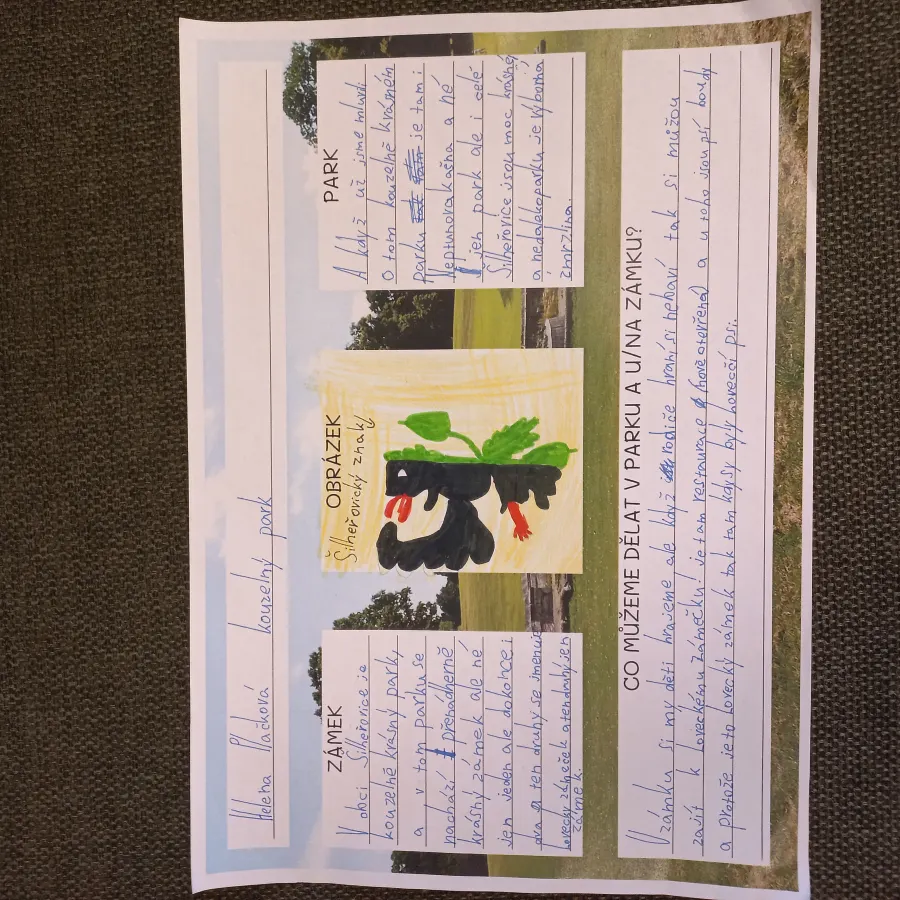 Helena Plačková kouzelný park
ZÁMEK
V obci Šilheřovice je
kouzelně krásný park,
a v tom parku se
nachází přenádherně
krásný zámek ale né
jen jeden ale dokonce i
dva a ten druhý se jmenuje
Lovecký zámeček a ten druhý jen
zámek.
OBRÁZEK
Šilheřovický znak
PARK
A když už jsme mluvili
o tom kouzelně krásném
parku je tam i
Neptunova kašna a né
jen park ale i celé
Šilheřovice jsou moc krásné
a nedaleko parku je výborná
zmrzlina.
CO MŮŽEME DĚLAT V PARKU A U/NA ZÁMKU?
V zámku si my děti hrajeme ale když rodiče hraní si nebaví tak si můžou
zajít k Loveckému zámečku! je tam restaurace (nově otevřená) a u toho jsou psí boudy
a protože je to lovecký zámek tak tam kdysy byly lovečtí psi.